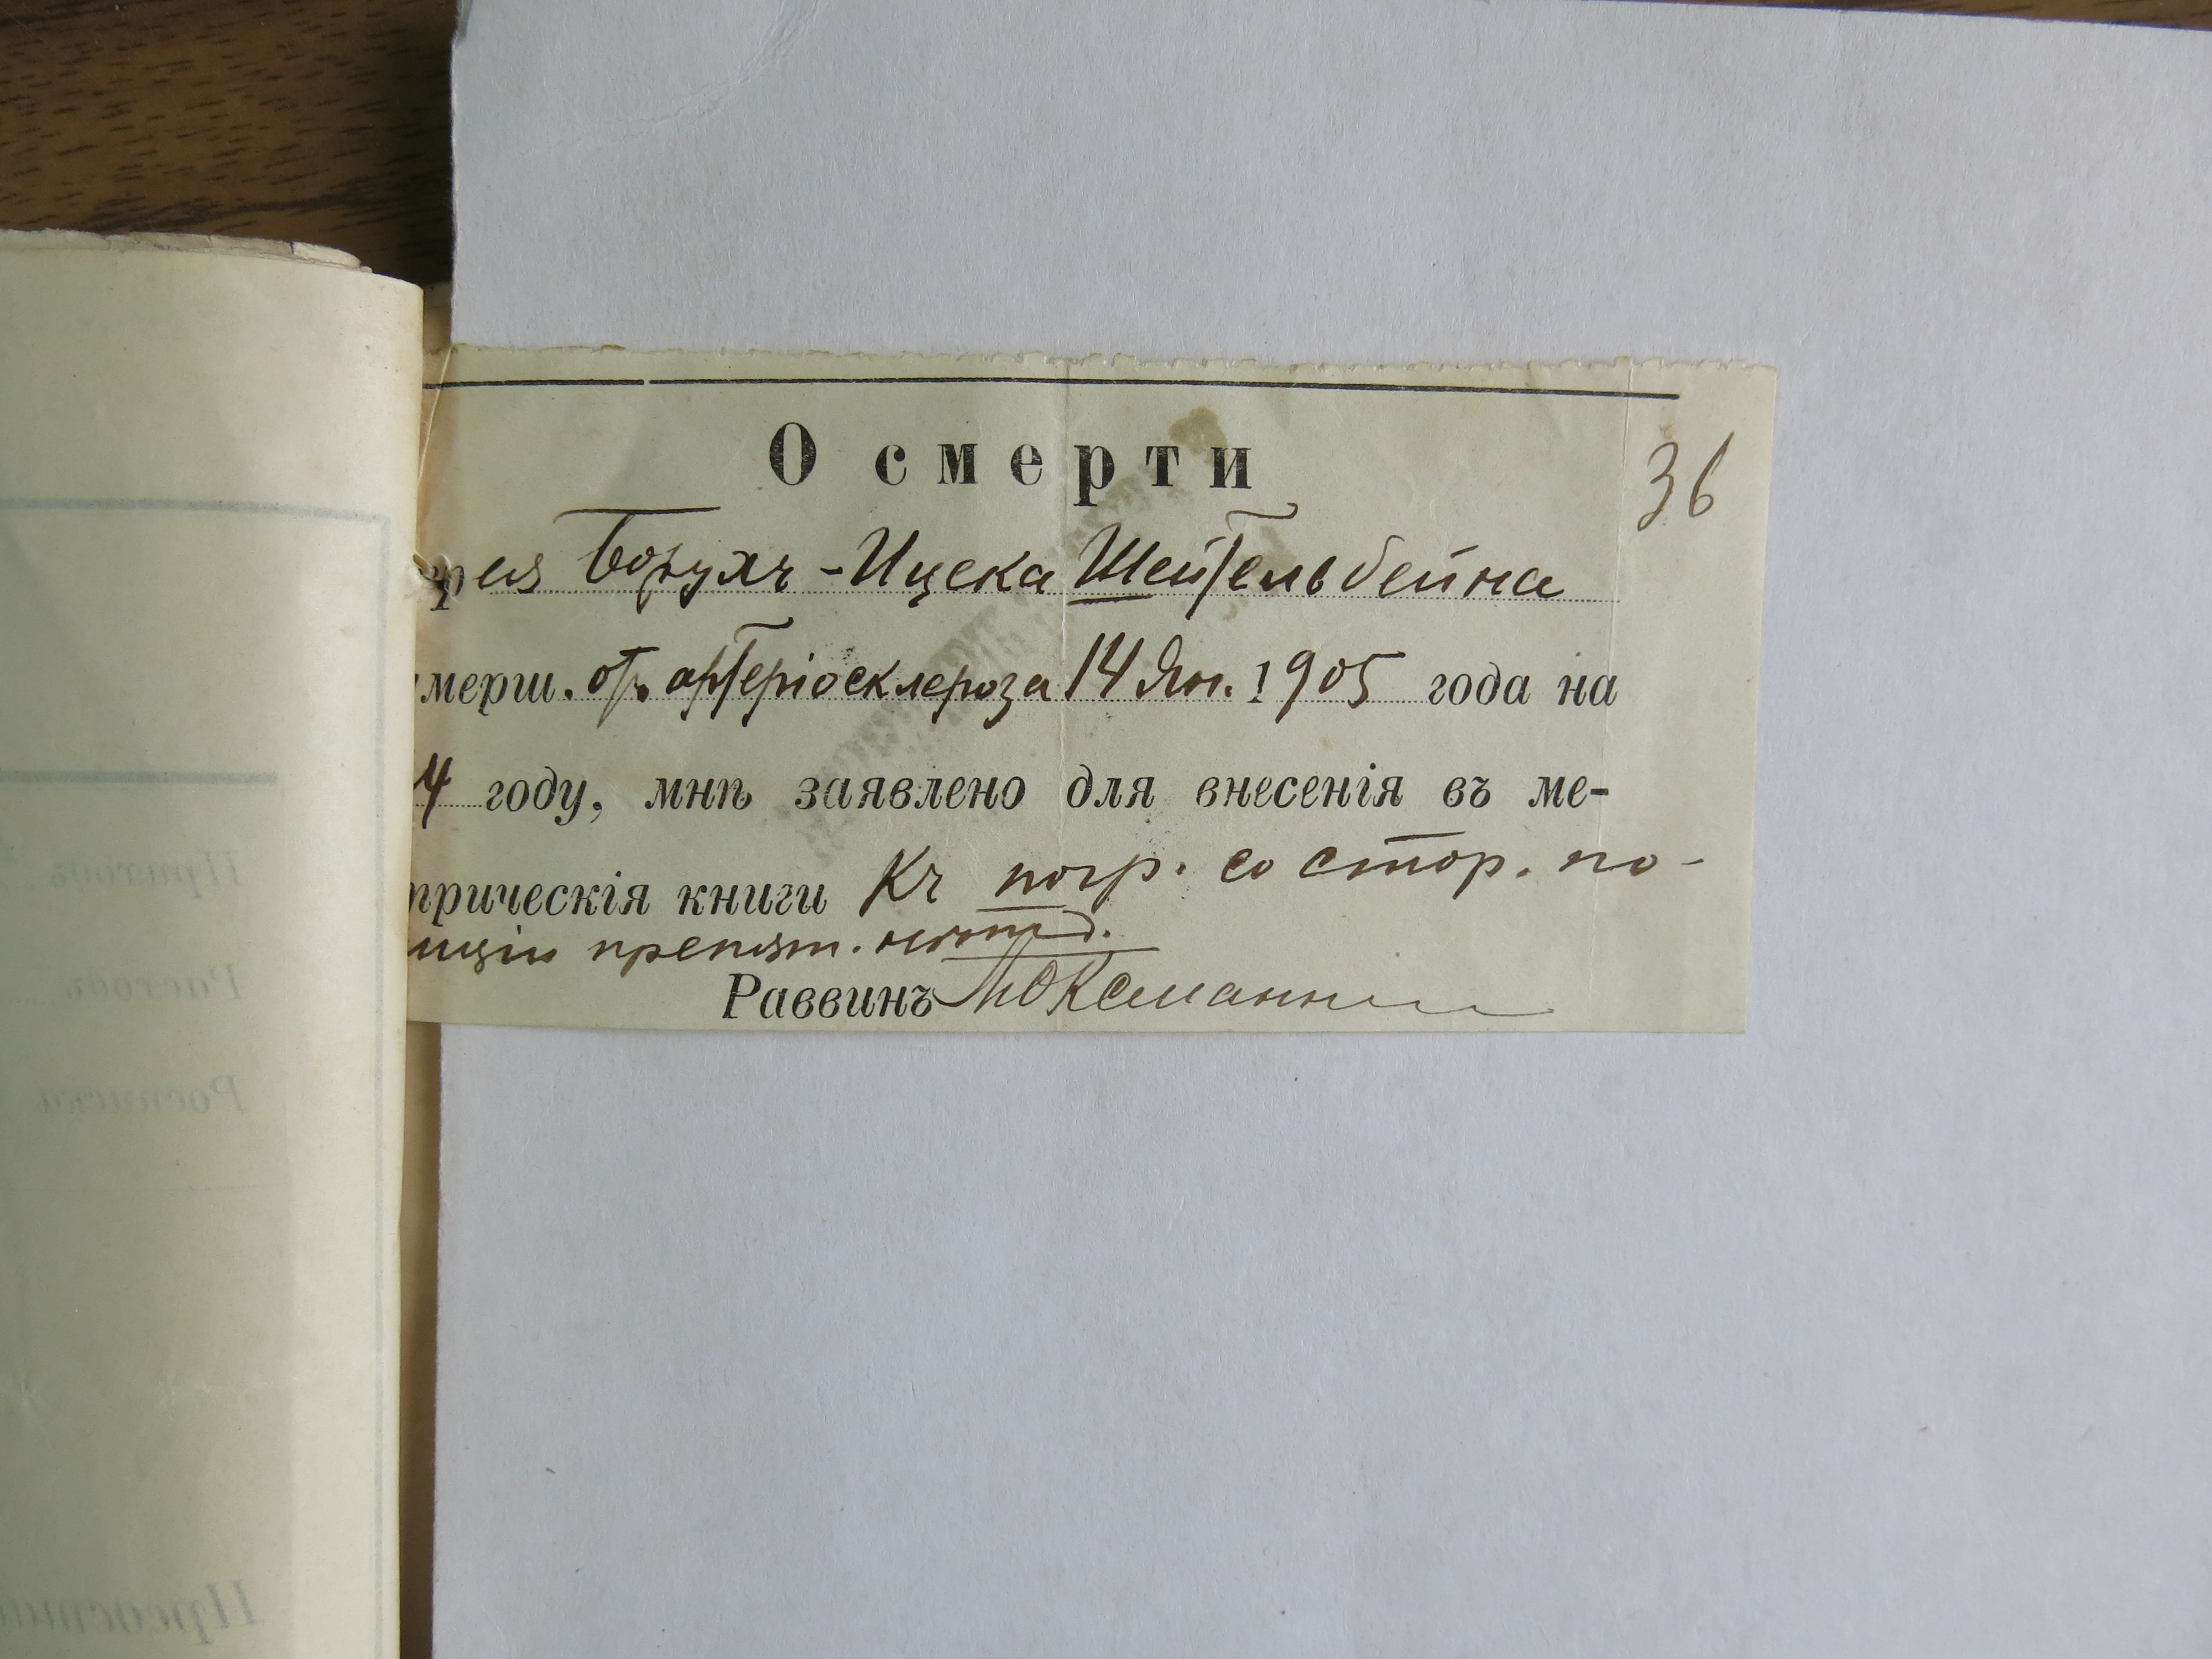 О смерти
36
рея Борухъ-Ицека Шейтельбейна
мерш. отъ артеріосклероза 14 Янв. 1905 года на
4 году, мнѣ заявлено для внесенія въ ме-
трическія книги Къ погр. со стор. по-
лиціи препят.
Раввинъ
Приходъ
Расходъ
Росписка